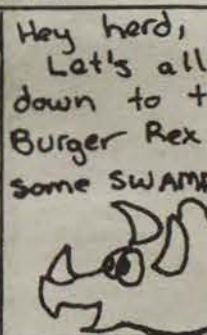 Hey herd,
Let's all
down to
Burger Rex
some SWAMP